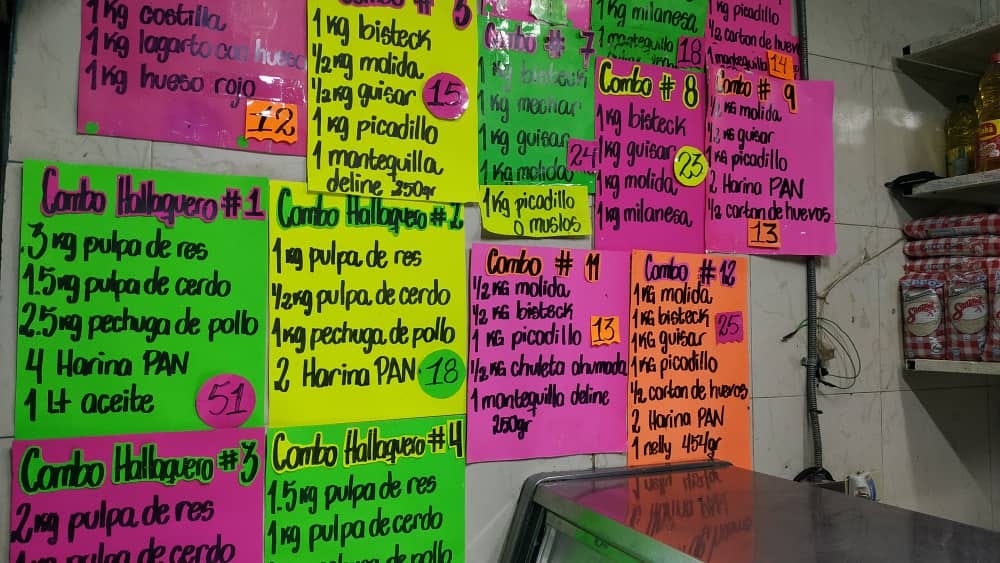 1 Kg costilla
1 Kg lagarto con hueso
1 Kg hueso rojo
12
Combo # 5
1 Kg bisteck
1/2 Kg molida
1/2 Kg guisar
1 Kg picadillo
1 mantequilla
deline 250gr
15
Combo # 7
1 Kg bisteck
1 Kg mechar
1 Kg guisar
1 Kg molida
24
1 Kg picadillo
o muslos
1 Kg milanesa
1 mantequilla
18
Combo # 8
1 Kg bisteck
1 Kg guisar
1 Kg molida
1 Kg milanesa
23
Kg picadillo
1/2 carton de huevo
1 mantequilla
14
Combo # 9
1/2 Kg molida
1/2 Kg guisar
1 Kg picadillo
2 Harina PAN
1/2 carton de huevos
13
Combo Hallaquero #1
3 Kg pulpa de res
1.5 Kg pulpa de cerdo
2.5 Kg pechuga de pollo
4 Harina PAN
1 Lt aceite
51
Combo Hallaquero #2
1 Kg pulpa de res
1/2 Kg pulpa de cerdo
1 Kg pechuga de pollo
2 Harina PAN
18
Combo # 11
1/2 KG molida
1/2 KG bisteck
1 KG picadillo
1/2 KG chuleta ahumada
1 mantequilla deline
250gr
13
Combo #12
1 KG molida
1 KG bisteck
1 KG guisar
1 KG picadillo
1/2 carton de huevos
2 Harina PAN
1 nelly 454gr
25
Combo Hallaquero #3
2 Kg pulpa de res
pulpa de cerdo
Combo Hallaquero #4
1.5 Kg pulpa de res
1 Kg pulpa de cerdo
pechuga de pollo